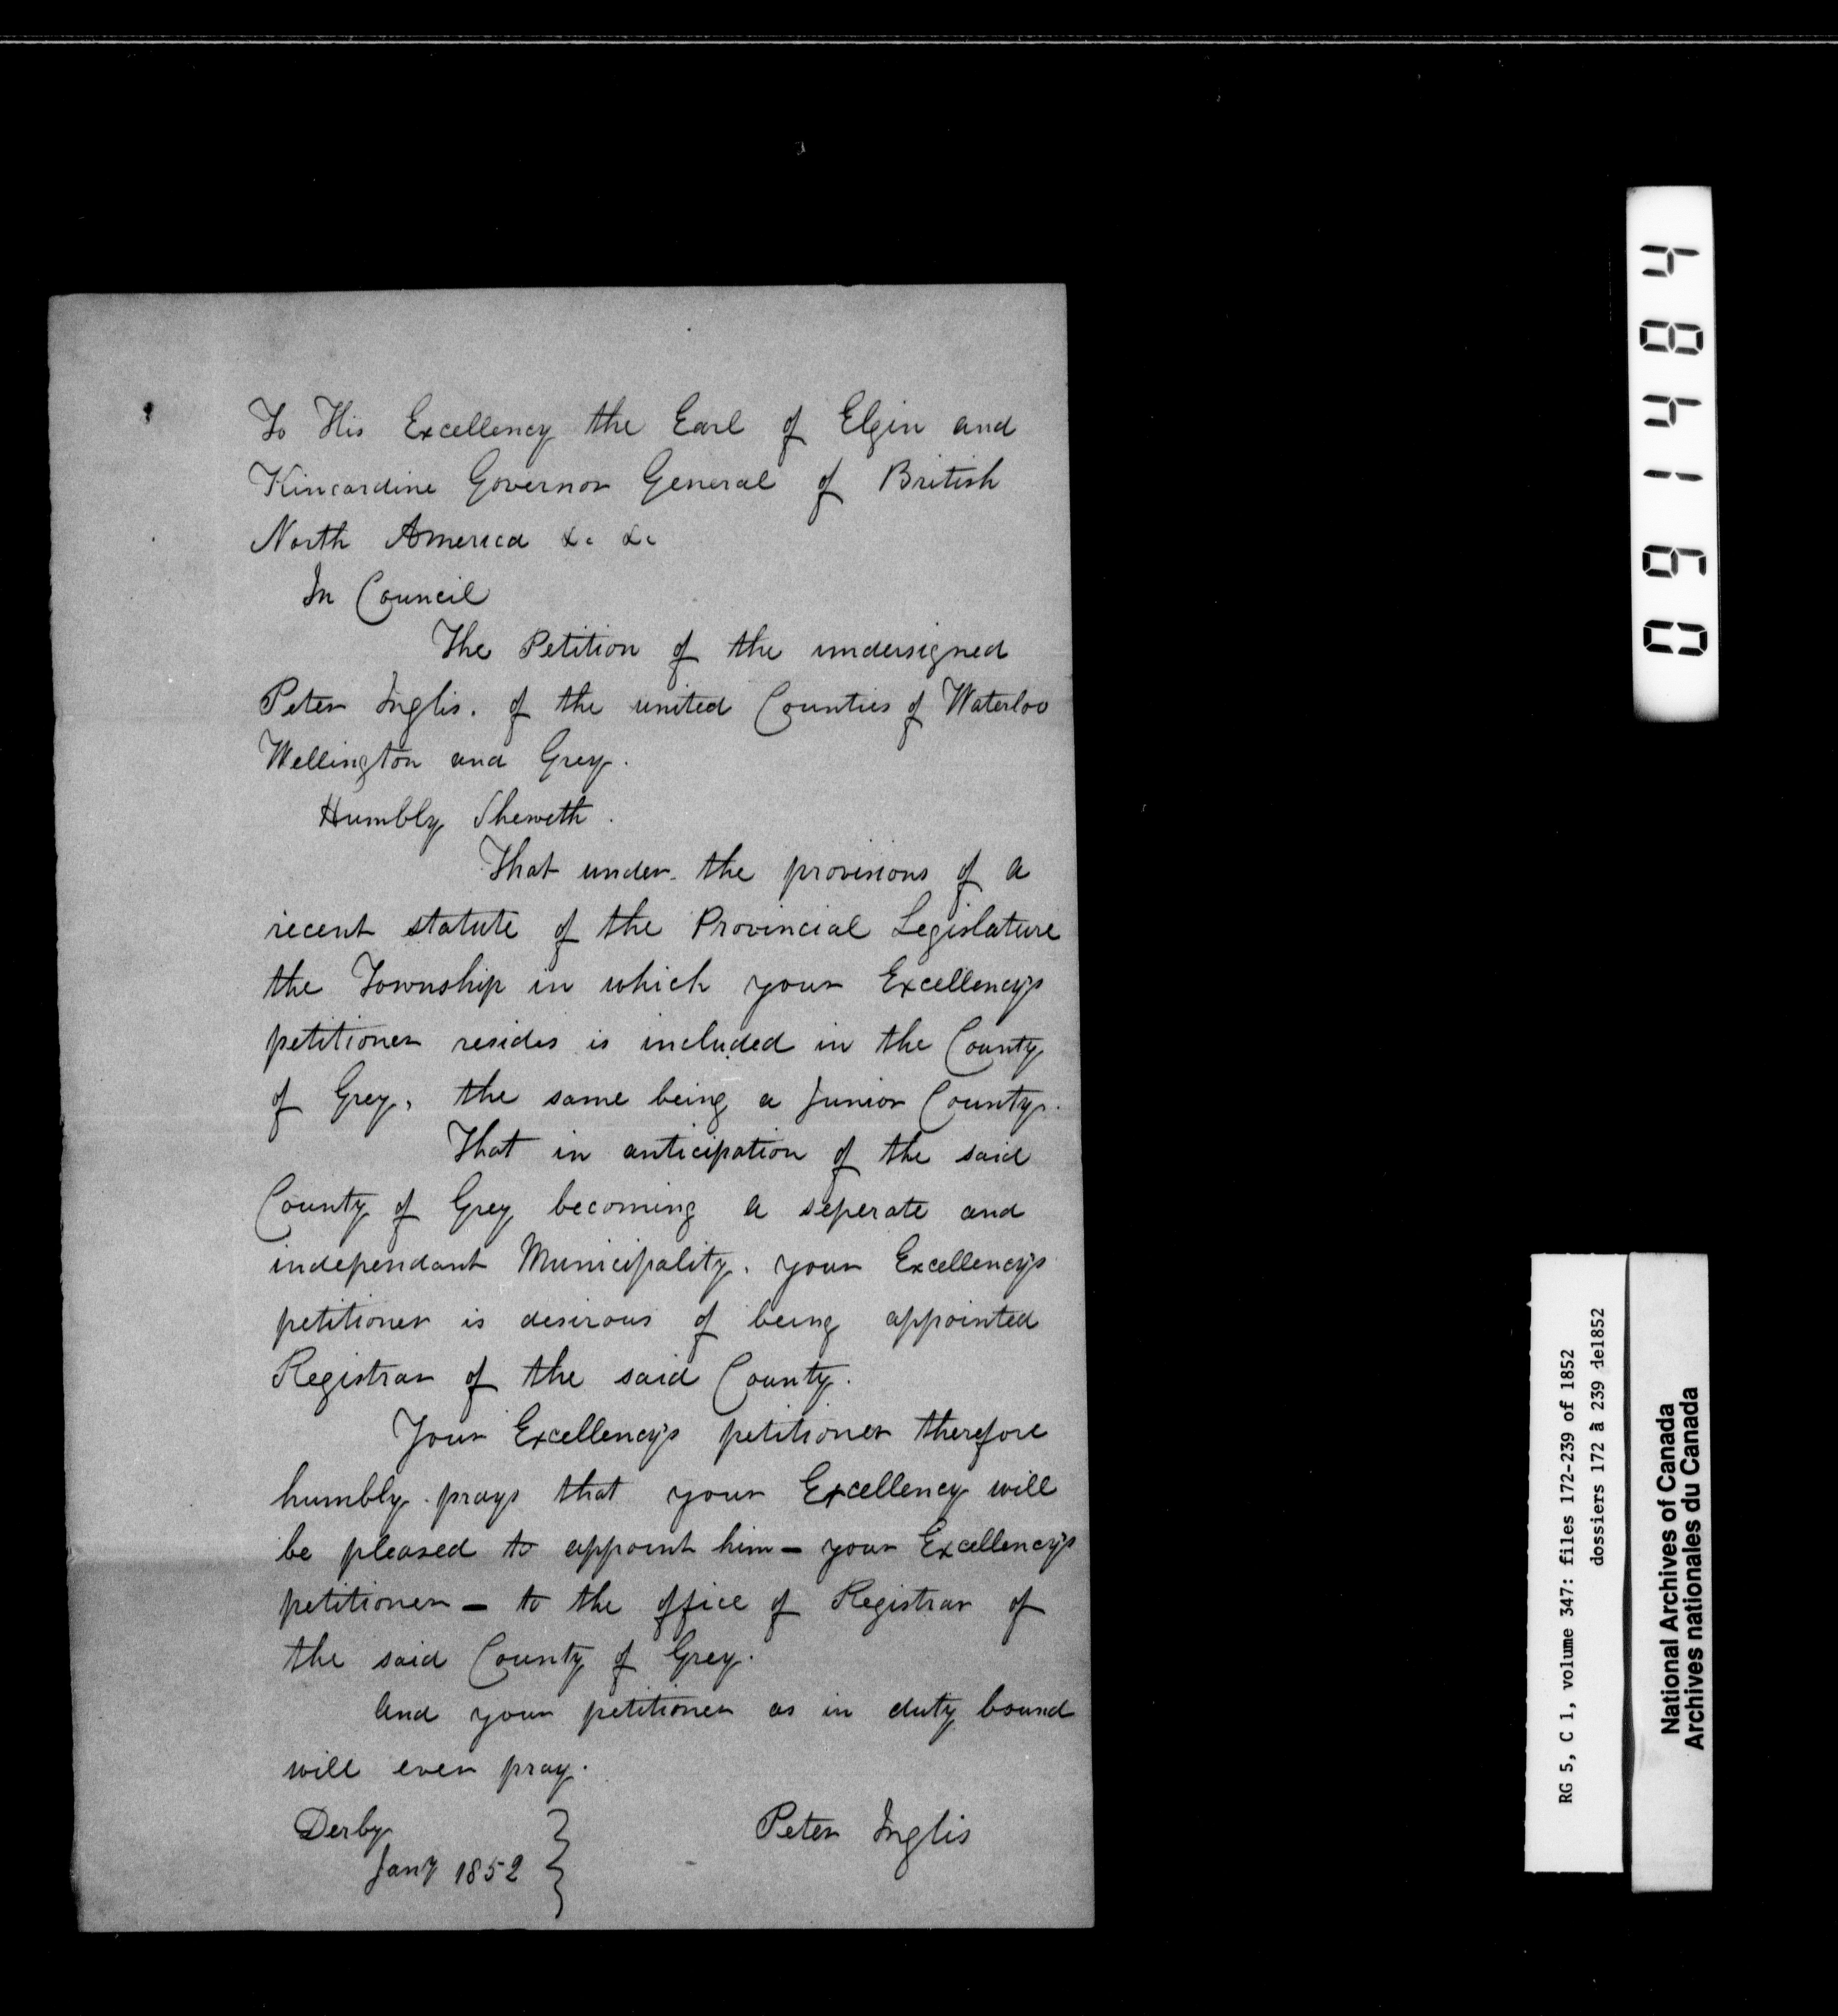 To His Excellency the Earl of Elgin and
Kincardine Governor General of British
North America &c &c
In Council
The Petition of the undersigned
Peter Inglis. of the united Counties of Waterloo
Wellington and Grey.
Humbly Sheweth.
That under the provisions of a
recent statute of the Provincial Legislature
the Township in which your Excellency's
petitioner resides is included in the County
of Grey, the same being a Junior County.
That in anticipation of the said
County of Grey becoming a seperate and
independant Municipality. your Excellency's
petitioner is desirous of being appointed
Registrar of the said County.
Your Excellency's petitioner therefore
humbly prays that your Excellency will
be pleased to appoint him - your Excellency's
petitioner - to the office of Registrar of
the said County of Grey.
And your petitioner as in duty bound
will ever pray.
Derby
Jany 1852
Peter Inglis
091484
RG 5, C 1, volume 347: files 172-239 of 1852
dossiers 172 à 239 de1852
National Archives of Canada
Archives nationales du Canada